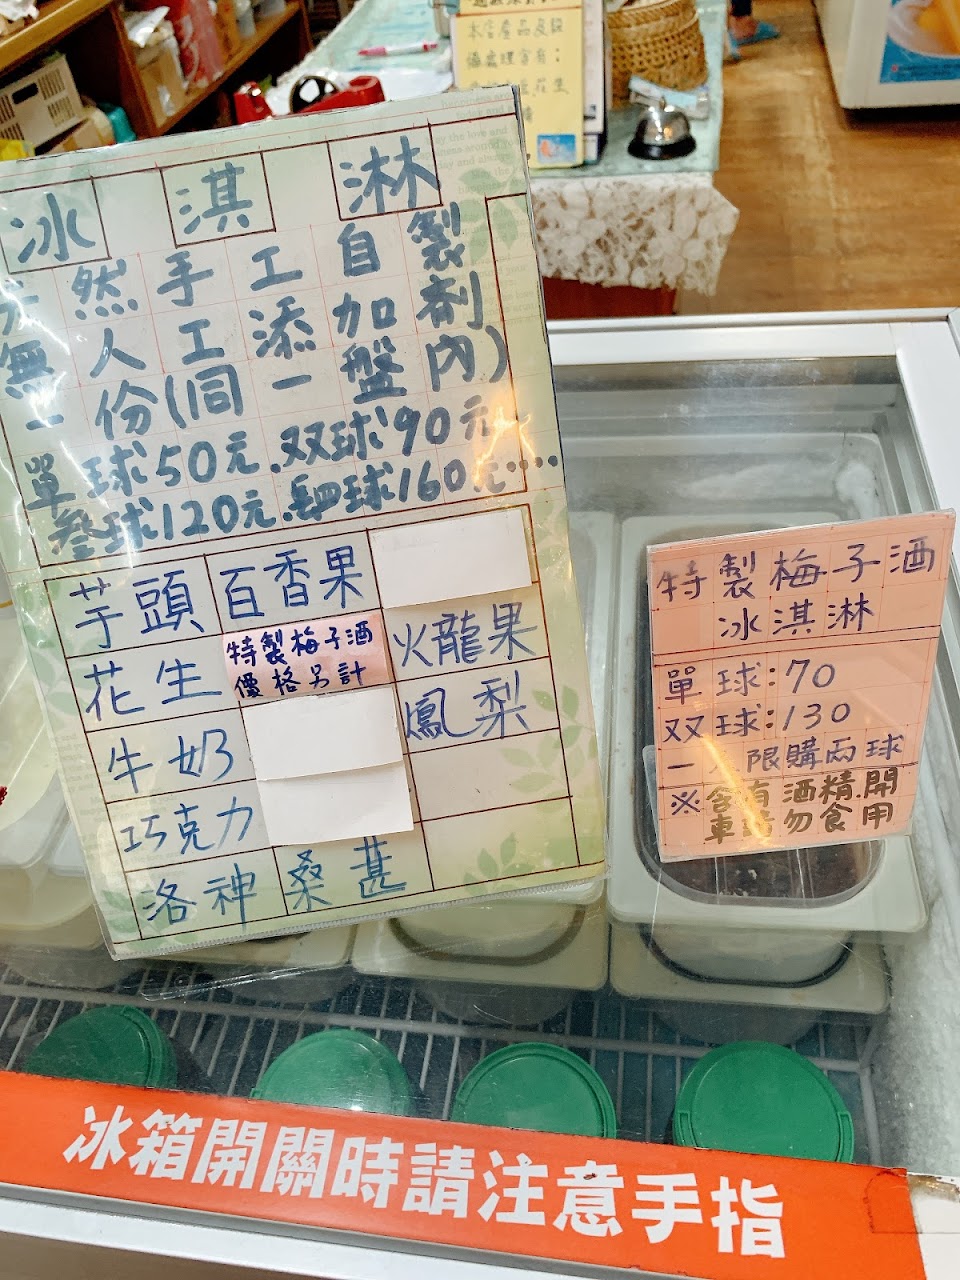 本店產品及設
備處理含有：
花生
冰淇淋
天然手工自製
無人工添加劑
一份(同一盤內)
單球50元.双球90元
參球120元.肆球160元……
芋頭 百香果
花生 特製梅子酒 火龍果
價格另計
牛奶 鳳梨
巧克力
洛神 桑葚
特製梅子酒
冰淇淋
單球:70
双球:130
一人限購兩球
※含有酒精.開
車請勿食用
冰箱開關時請注意手指